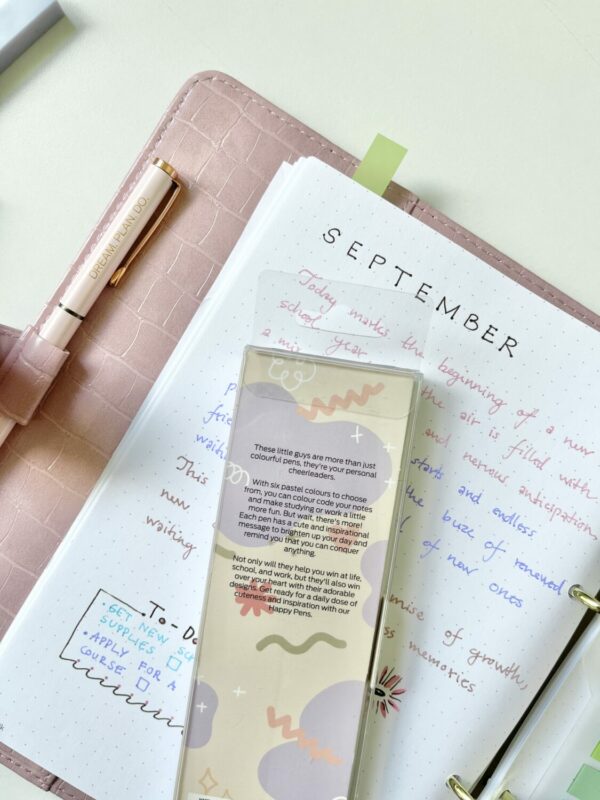 DREAM. PLAN. DO.
SEPTEMBER
Today marks the beginning of a new
school year
a mi the air is filled with
and nervous anticipation,
starts and endless
waiting the buzz of renewed
of new ones
This
new
waiting
mise of growth,
memories
To-Do
• GET NEW
SUPPLIES
• APPLY FOR A
COURSE
These little guys are more than just
colourful pens, they're your personal
cheerleaders.
With six pastel colours to choose
from, you can colour code your notes
and make studying or work a little
more fun. But wait, there's more!
Each pen has a cute and inspirational
message to brighten up your day and
remind you that you can conquer
anything.
Not only will they help you win at life,
school, and work, but they'll also win
over your heart with their adorable
designs. Get ready for a daily dose of
cuteness and inspiration with our
Happy Pens.